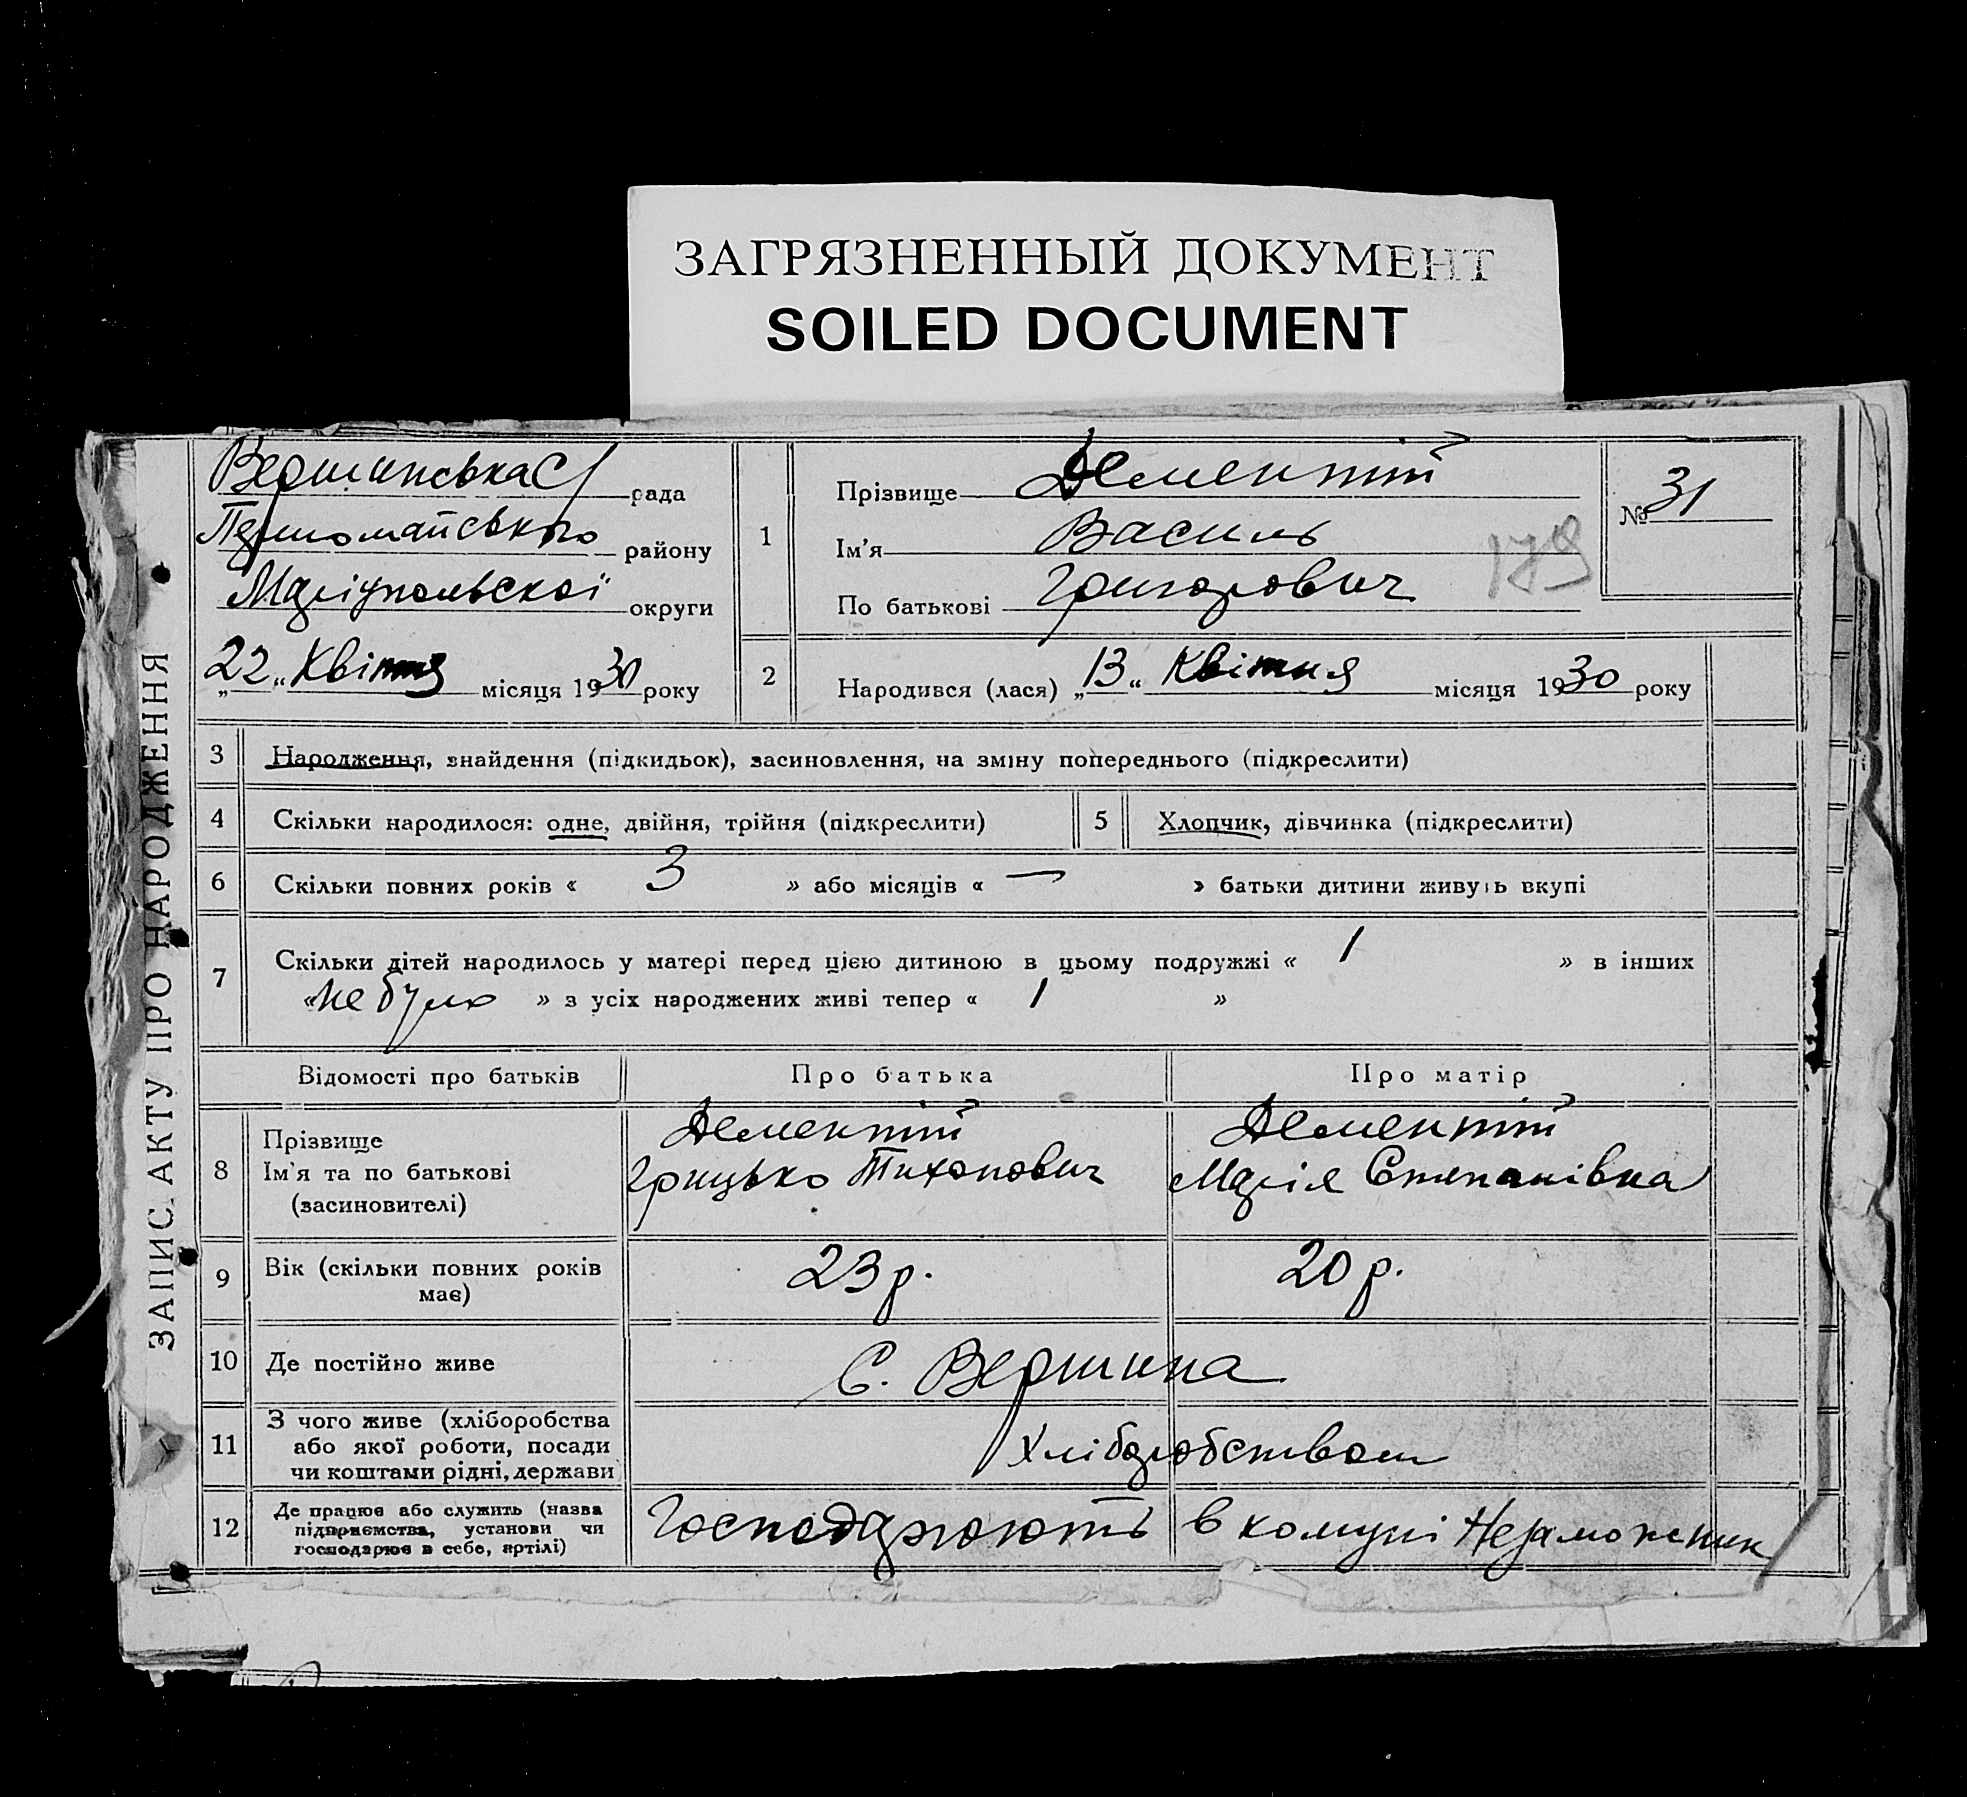 ЗАГРЯЗНЕННЫЙ ДОКУМЕНТ
SOILED DOCUMENT
ЗАПИС АКТУ ПРО НАРОДЖЕННЯ
Вершинська С/рада
Першомайського району
Маріупольскої округи
„22“ Квітня місяця 1930 року
1
Прізвище Дементій
Ім'я Василь
По батькові Григорович
179
№ 31
2 Народився (лася) „13“ Квітня місяця 1930 року
3 Народження, знайдення (підкидьок), засиновлення, на зміну попереднього (підкреслити)
4 Скільки народилося: одне, двійня, трійня (підкреслити)
5 Хлопчик, дівчинка (підкреслити)
6 Скільки повних років « 3 » або місяців « — » батьки дитини живуть вкупі
7 Скільки дітей народилось у матері перед цією дитиною в цьому подружжі « 1 » в інших
«не було » з усіх народжених живі тепер « 1 »
Відомості про батьків Про батька Про матір
8 Прізвище
Ім'я та по батькові
(засиновителі)
Дементій
Грицько Тихонович
Дементій
Марія Степанівна
9 Вік (скільки повних років
має)
23 р. 20 р.
10 Де постійно живе С. Вершина
11 З чого живе (хліборобства
або якої роботи, посади
чи коштами рідні, держави
Хліборобством
12 Де працює або служить (назва
підприємства, установи чи
господарює в себе, артілі)
Господарюють в комуні Незаможник